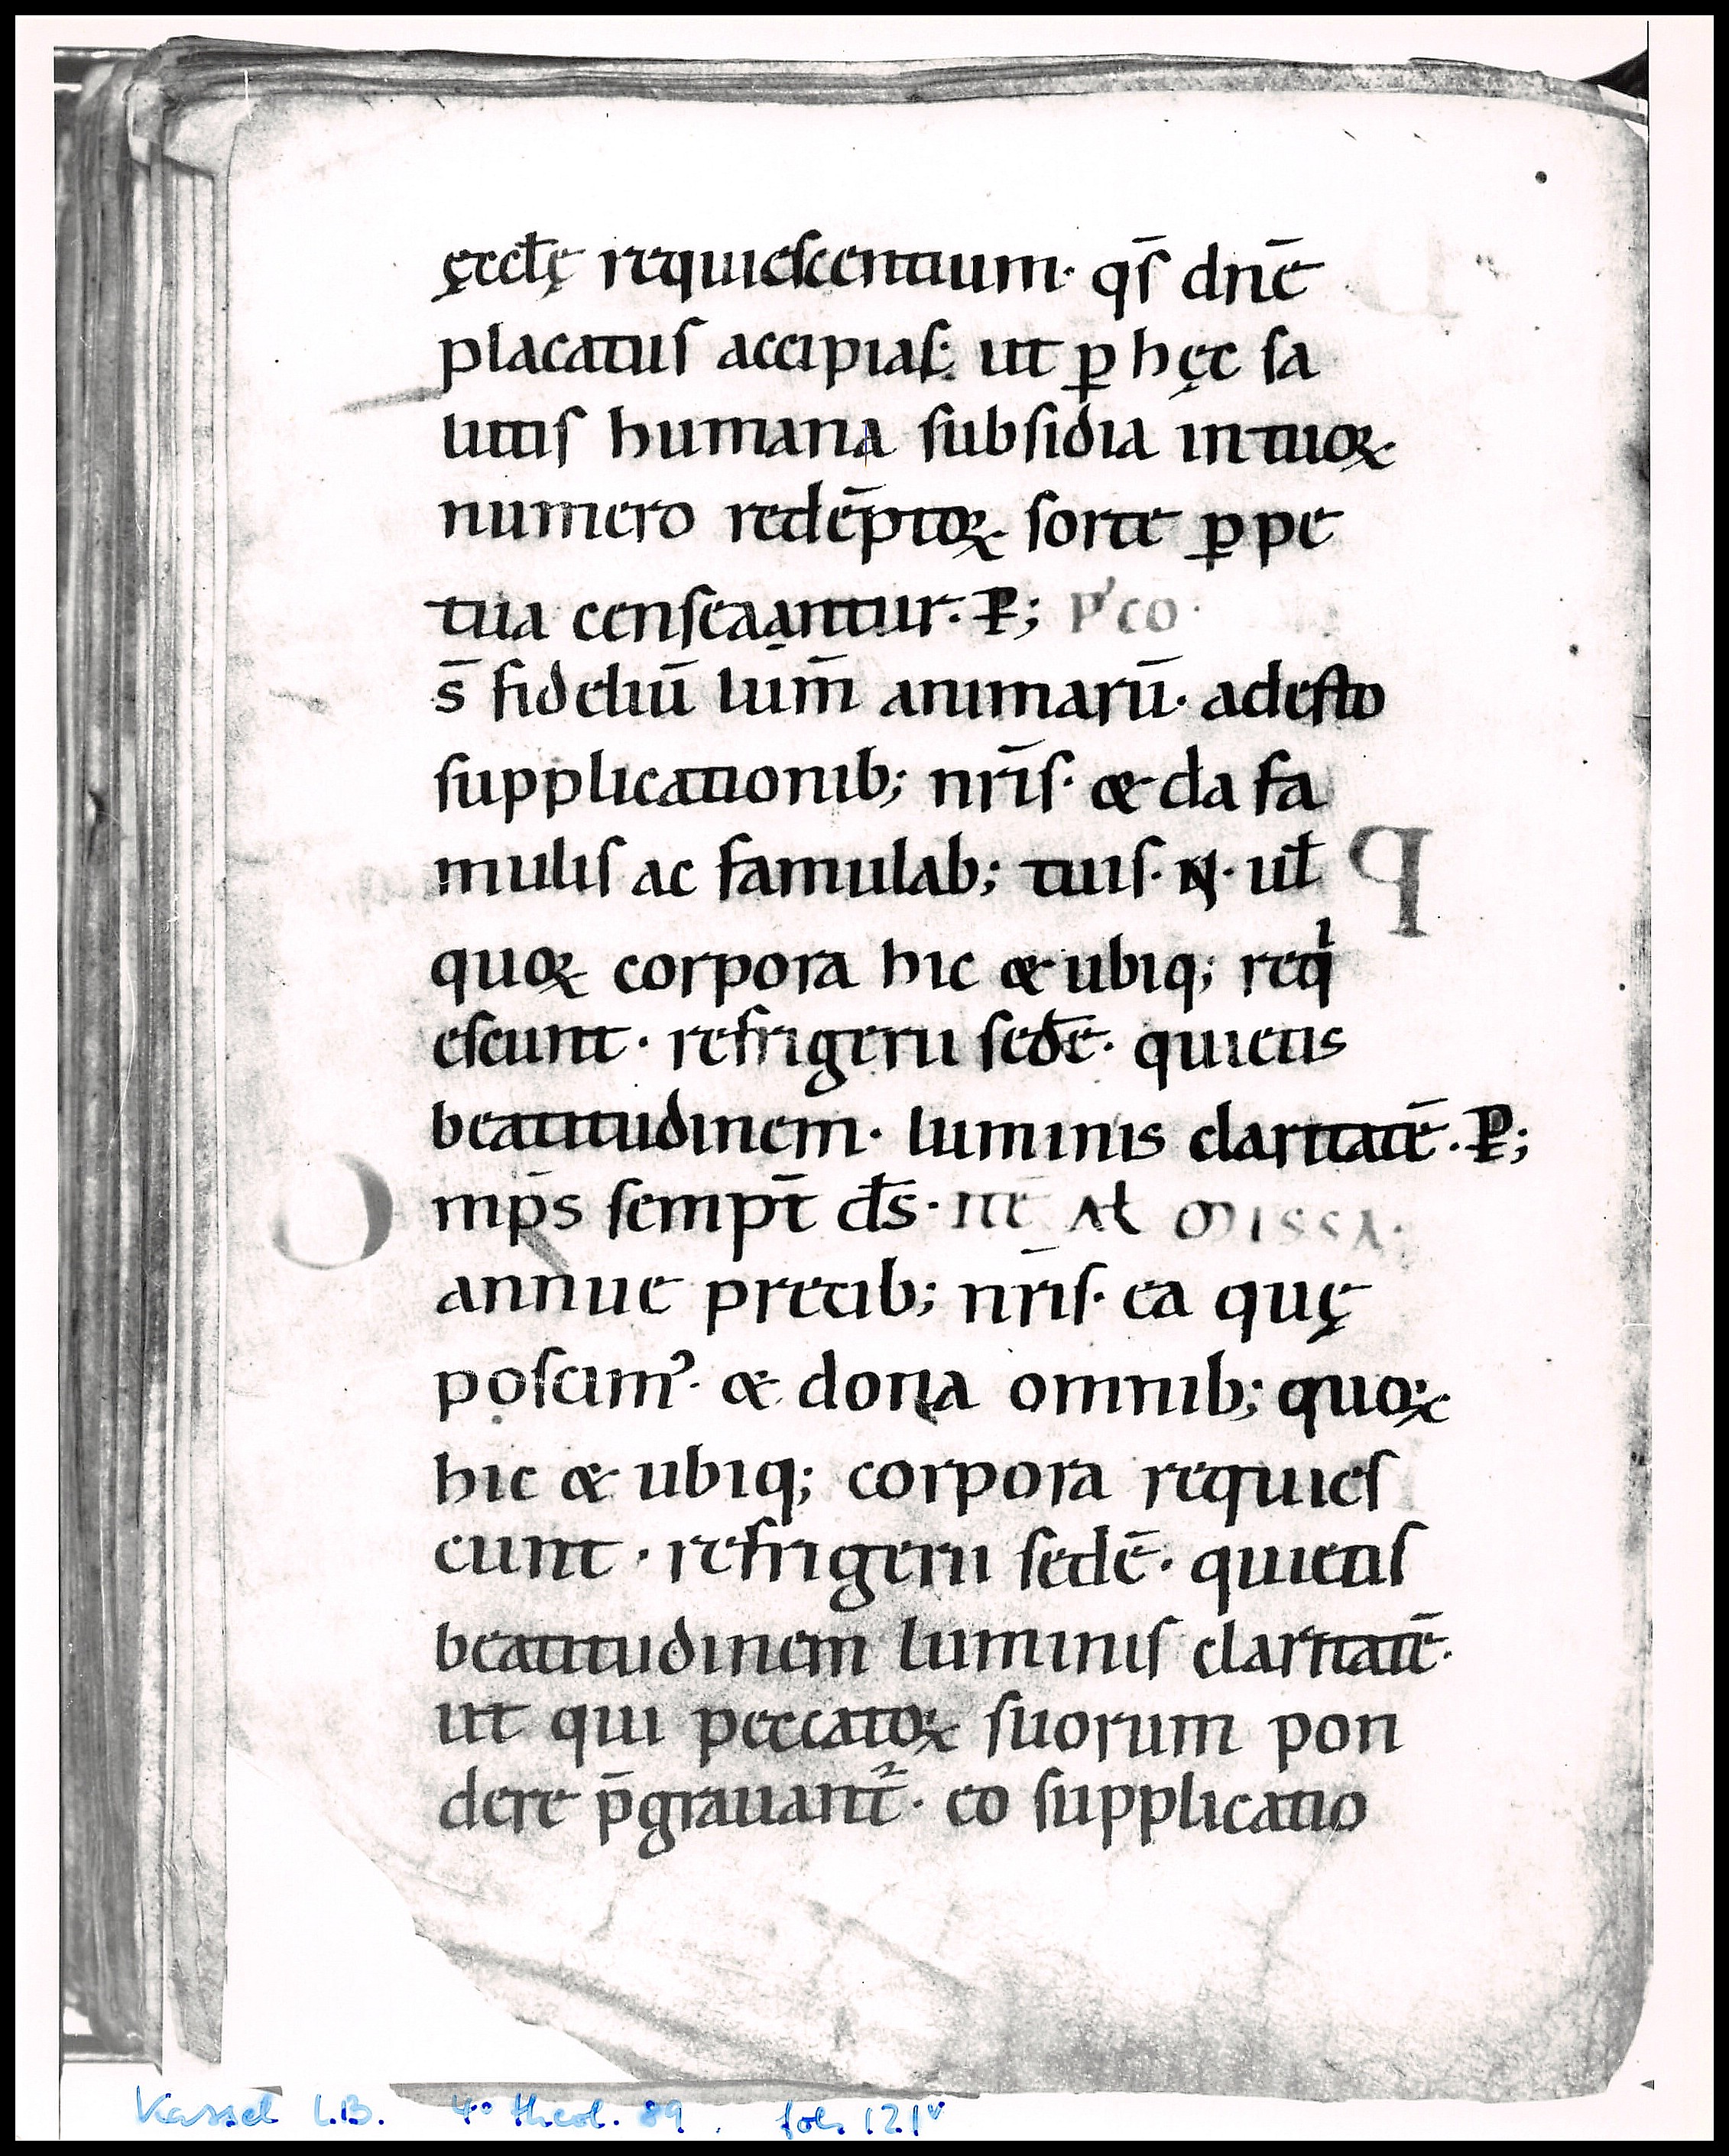 ęccłę requieſcentium· qſ̄ dn̄e
placatuſ accipiaſ· ut ꝑ hęc ſa
lutiſ humana ſubſidia in tuoꝝ
numero redēptoꝝ ſorte ꝑpe
tua cenſeaantur· P̶; p'co·
s̄ fideliū lūm̄ animarū· adeſto
ſupplicationib; nr̄iſ· & da fa
muliſ ac famulab; tuiſ· N· uł
quoꝝ corpora hic & ubiq; req̍
eſcunt· refrigerii ſedē· quietis
beatitudinem· luminis claritatē· P̶;
O mp̄s ſempt̄ d̄s· ITĒ Ał MISSA·
annue precib; nr̄iſ· ea quę
poſcimꝰ· & dona omnib; quoꝝ
hic & ubiq; corpora requieſ
cunt· refrigerii ſedē· quietiſ
beatitudinem luminiſ claritatē·
ut qui peccatoꝝ ſuorum pon
dere p̄grauant᷑· eo ſupplicatio
Kassel L.B. 4° theol. 89. fol. 121v